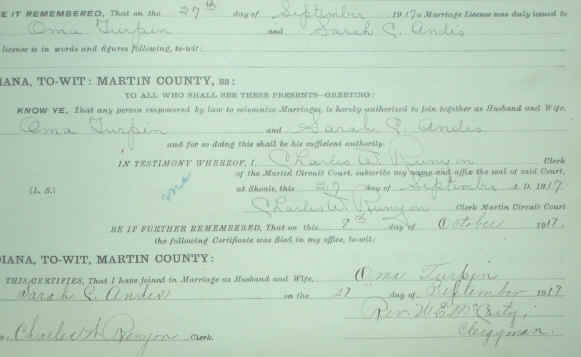 E IT REMEMBERED, That on the 27th day of September 1917 a Marriage License was duly issued to
Oma Turpin and Sarah E. Andis
license is in words and figures following, to-wit:
IANA, TO-WIT: MARTIN COUNTY, SS:
TO ALL WHO SHALL SEE THESE PRESENTS—GREETING:
KNOW YE, That any person empowered by law to solemnize Marriages, is hereby authorized to join together as Husband and Wife,
Oma Turpin and Sarah E. Andis
and for so doing this shall be his sufficient authority.
IN TESTIMONY WHEREOF, I, Charles W. Runyon Clerk
of the Martin Circuit Court, subscribe my name and affix the seal of said Court,
(L. S.) at Shoals, this 27 day of September A. D. 1917
Charles W. Runyon Clerk Martin Circuit Court
BE IT FURTHER REMEMBERED, That on this 8th day of October 1917.
the following Certificate was filed in my office, to-wit:
DIANA, TO-WIT, MARTIN COUNTY:
THIS CERTIFIES, That I have joined in Marriage as Husband and Wife, Oma Turpin
Sarah E. Andis on the 27 day of September 1917
Rev. W. E. McCarty,
Charles W. Runyon Clerk. Clergyman.